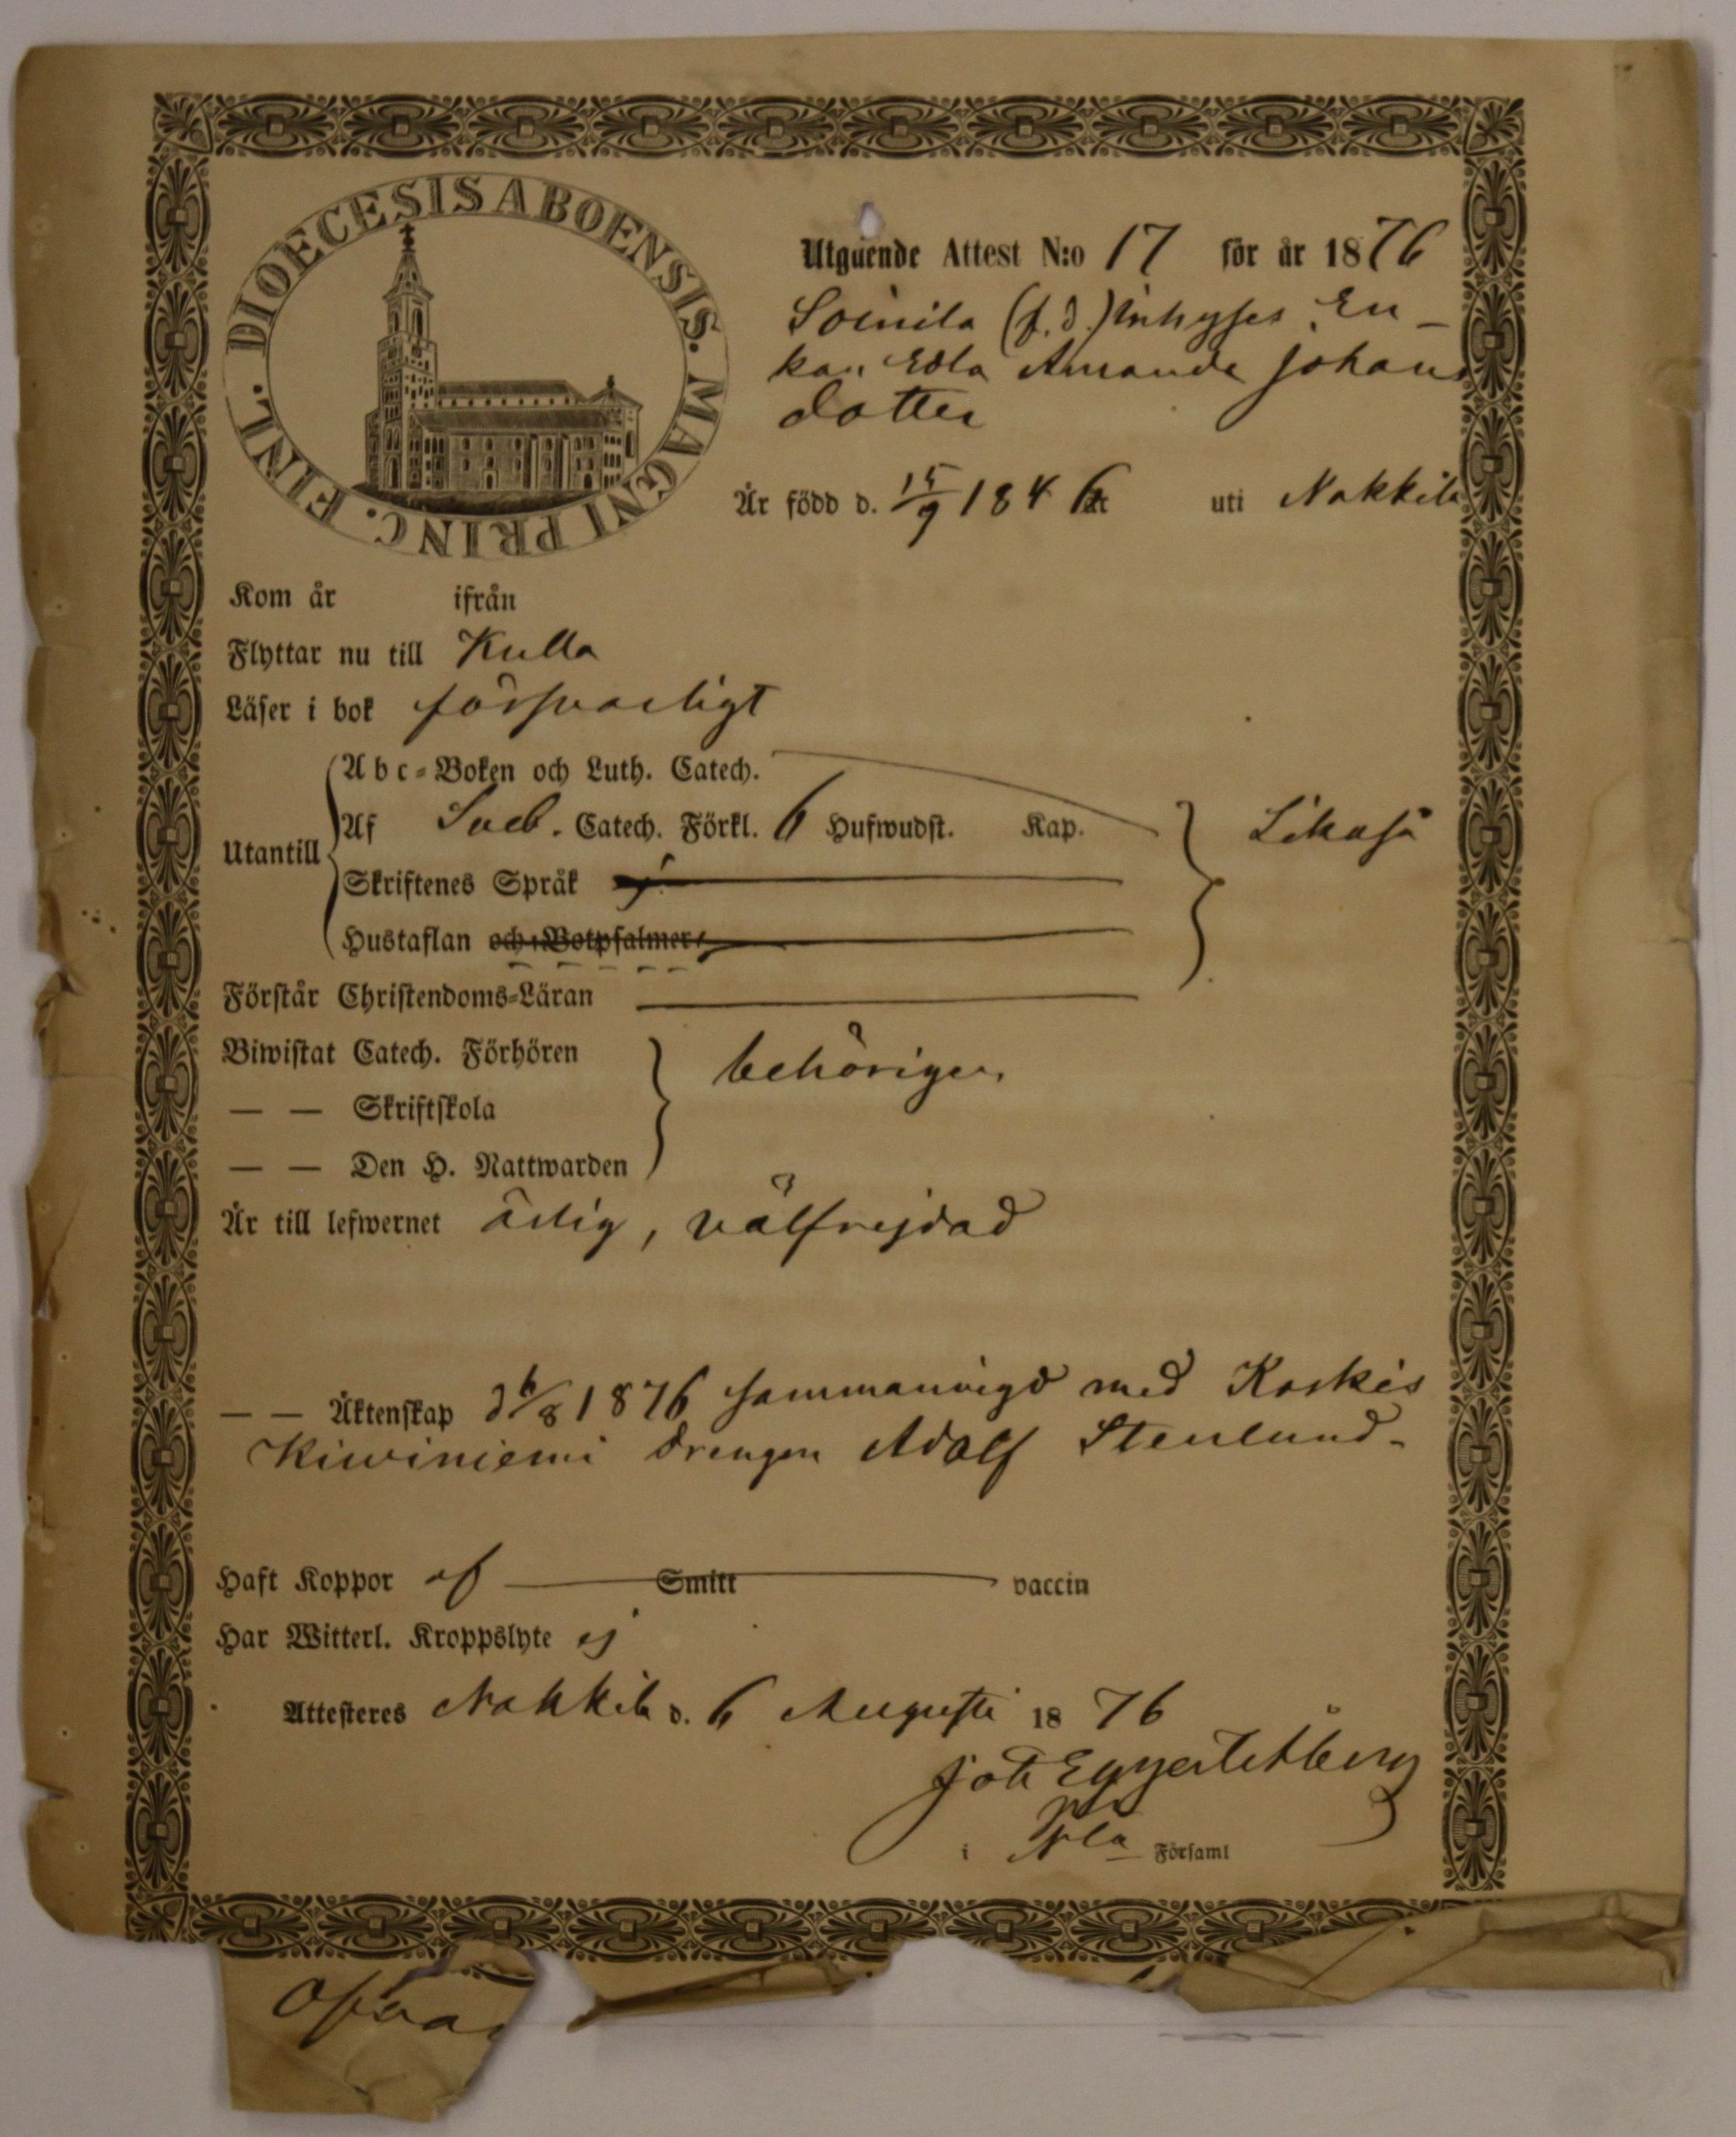 DIOECESIS ABOENSIS. MAGNI PRINC. FINL.
Utgående Attest N:o 17 för år 1876
Soinila (f.d.) Inhyses En-
kan Edla Amanda Johans
dotter
Är född d. 15/9 1846 uti Nakkila
Kom år ifrån
Flyttar nu till Kulla
Läser i bok försvarligt
Abc-Boken och Luth. Catech.
Utantill Af Sveb. Catech. Förkl. 6 Hufwudst. Kap. Likaså
Skriftenes Språk
Hustaflan och Botpsalmer
Förstår Christendoms-Läran
Biwistat Catech. Förhören behörigen
— — Skriftskola
— — Den H. Nattwarden
Är till lefwernet ärlig, välfrejdad
— — Äktenskap d 6/8 1876 sammanvigd med Koskis
Kiwiniemi drengen Adolf Stenlund.
Haft Koppor af Smitt vaccin
Har Witterl. Kroppslyte ej
Attesteres Nakkila d. 6 Augusti 1876
Joh
i Nla Församl